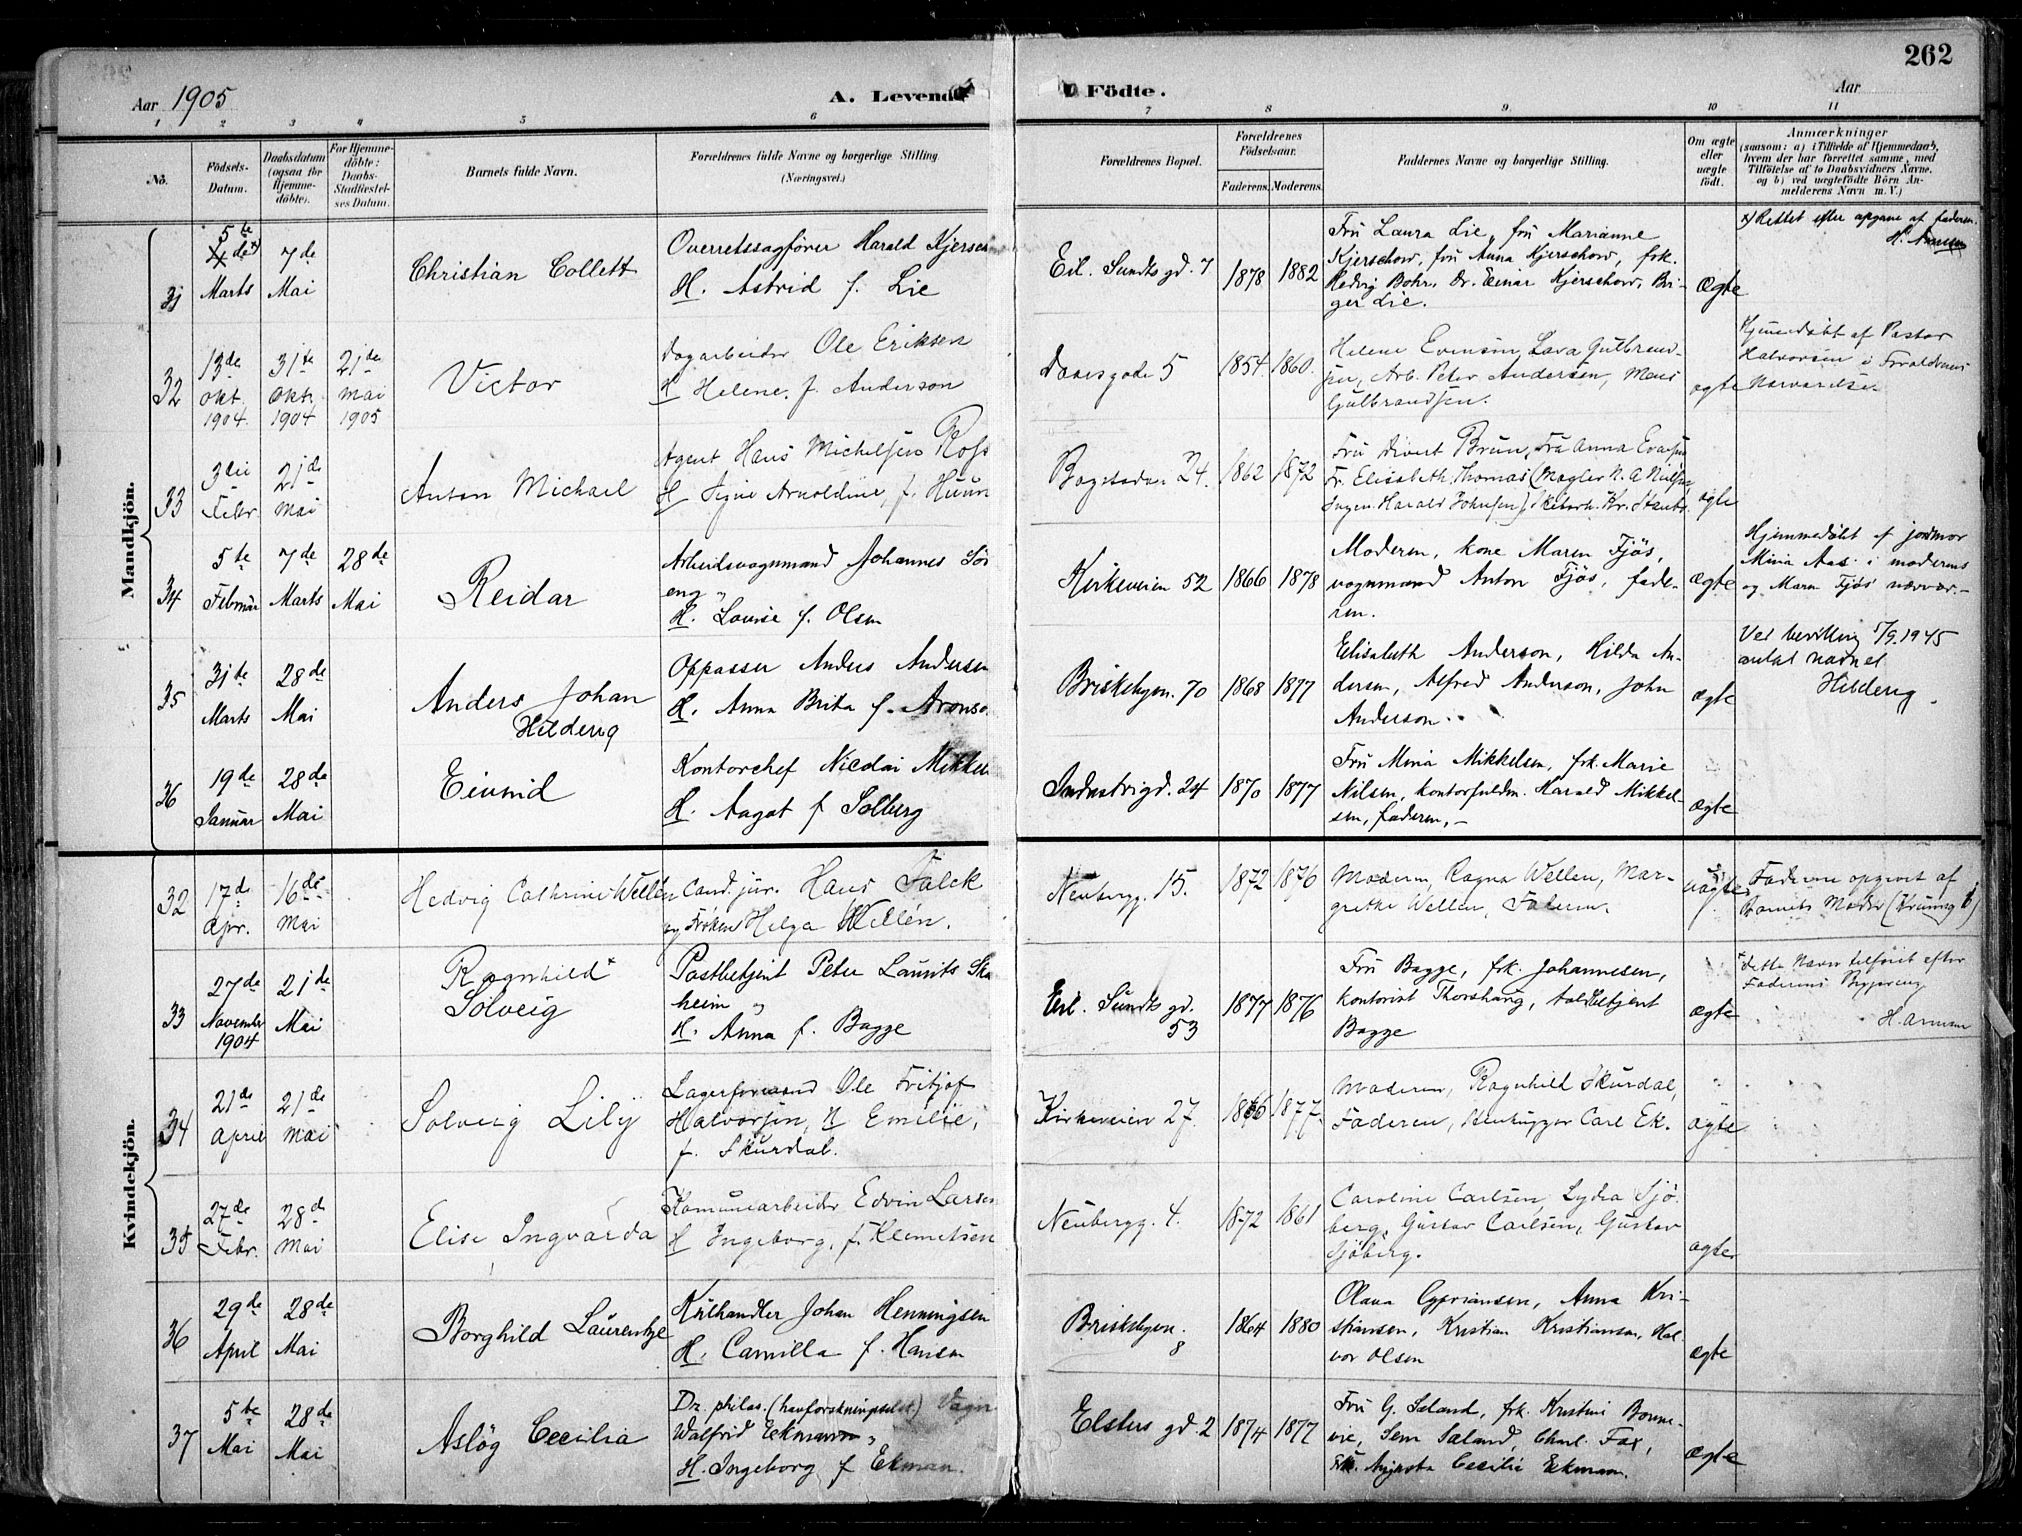 262
Aar 1905
A. Levende
Födte.
Aar
1 2 3 4 5 6 7 8 9 10 11
No.
Födsels-
Datum.
Daabsdatum
(ogsaa for
Hjemme-
döbte).
For Hjemme-
döbte:
Daabs-
Stadfæstel-
ses Datum.
Barnets fulde Navn.
Forældrenes fulde Navne og borgerlige Stilling.
(Næringsvei.)
Forældrenes Bopæl.
Forældrenes
Födselsaar.
Faderens. Moderens.
Faddernes Navne og borgerlige Stilling.
Om ægte
eller
uægte
födt.
Anmærkninger
(saasom: a) i Tilfælde af Hjemmedaab,
hvem der har forrettet samme, med
Tilföielse af to Daabsvidners Navne,
og b) ved uægtefödte Börn An-
melderens Navn m. V.)
Mandkjön.
31
5te
4de x)
Marts
7de
Mai
Christian Collett
Overretssagfører Harald Kjersch
H. Astrid f. Lie
Eil. Sundts gd. 7
1878 1882
Fru Laura Lie, fru Marianne
Kjerschow, fru Anna Kjerschow, frk.
Hedvig Bohr, Dr. Einar Kjerschow, Bri-
ger Lie.
Ægte
x) Rettet efter opgave af faderen.
32
13de
Okt.
1904
31te
Okt.
1904
21de
Mai
1905
Victor
Dagarbeider Ole Eriksen
H Helene, f. Anderson
Daasgade 5
1854. 1860.
Helene Evensen, Lava Gulbrand-
sen, Arb. Peter Andersen, Mans
Gulbrandsen.
ægte
Hjemmedøbt af Pastor
Halvorsen i Forældrenes
Nærværelse
33
3die
Febr.
21de
Mai
Anton Michael
Agent Hans Michelsen Ross
H Signe Arnoldine, f. Huun
Bogstadv. 24.
1862 1872
Fru Brun, Fru Anna
Fr. Elisabeth Thomas (Mægler N. A. Nielsen,
Ingen. Harald Johnsen)
ægte
34
5te
Februar
7de
Marts
28de
Mai
Reidar
Arbeidsvognmand Johannes Sör
eng
H. Louise f. Olsen
Kirkeveien 52
1866 1878
Moderen, kone Maren Fjøs,
vognmand Anton Fjøs, fade-
ren.
ægte
Hjemmedøbt af jordmor
Mina Aas i moderens
og Maren Fjøs' nærvær.
35
31te
Marts
28de
Mai
Anders Johan
Hilderig
Oppasser Anders Andersen
H. Anna Brita f. Aronso
Briskebyen. 70
1868 1877
Elisabeth Anderson, Hilda An-
dersen, Alfred Anderson, John
Anderson.
ægte
Ved bevilling 5/9 1945
antat navnet
Hilderig.
36
19de
Januar
28de
Mai
Eivind
Kontorchef Nicolai Mikkel
H. Aagot f Solberg
Industrigd. 24
1870 1877
Fru Mina Mikkelsen, frk. Marie
Nilsen, kontorfuldm. Harald Mikkel-
sen, faderen, -
ægte
Kvindekjön.
32
17de
Apr.
16de
Mai
Hedvig Cathrine Wellén
Cand. jur. Hans Falck
og Frøken Helga Wellén.
Neubergg. 15.
1872 1876
Moderen, Ragna Wellen, Mar-
grethe Wellen, Faderen.
uægte
Faderen opgivet af
Barnets Moder
33
27de
November
1904
21de
Mai
Ragnhild x
Solveig
Postbetjent Peter Laurits Ska
heim
H. Anna f. Bagge
Eil. Sundts gd.
53
1877 1876
Fru Bagge, frk. Johannesen,
kontorist Thorshaug, toldbetjent
Bagge
ægte
x dette Navn tilføiet efter
Faderens Begjæring
34
21de
April
21de
Mai
Solveig Lily
Lagerformand Ole Fritjof
Halvorsen, H Emilie,
f. Skurdal.
Kirkeveien 27.
1876 1877.
Moderen, Ragnhild Skurdal,
Faderen, Stenhugger Carl Ek.
ægte
35
27de
Febr.
28de
Mai
Elise Ingvarda
Komunearbeider Edvin Larsen
H Ingeborg, f. Klemetsen
Neubergg. 4.
1872 1861
Caroline Carlsen, Lydia Sjö-
berg, Gustav Carlsen, Gustav
Sjöberg.
ægte
36
29de
April
28de
Mai
Borghild Laurentze
Kulhandler Johan Henningsen
H. Camilla f. Hansen
Briskebyen.
8
1864 1880
Olava Cypriansen, Anna Kri-
stiansen, Kristian Kristiansen, Hal-
vor Olsen
ægte
37
5te
Mai
28de
Mai
Aslög Cecilia
Dr. philos. (havforskningsselsk) Vagn
Walfrid Eckman
H. Ingeborg f Ekman.
Elsters gd. 2
1874 1877
Fru G. Sæland, frk. Kristine Bonne-
vie, Sem Sæland, Charl. Fax,
Frk. Augusta Cecilia Eckman.
ægte